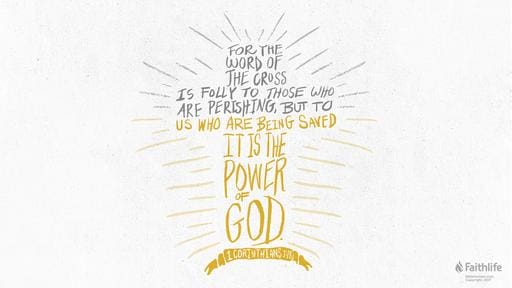 FOR THE
WORD OF
THE CROSS
IS FOLLY TO THOSE WHO
ARE PERISHING, BUT TO
US WHO ARE BEING SAVED
IT IS THE
POWER
OF
GOD.
1 CORINTHIANS 1:18
Faithlife